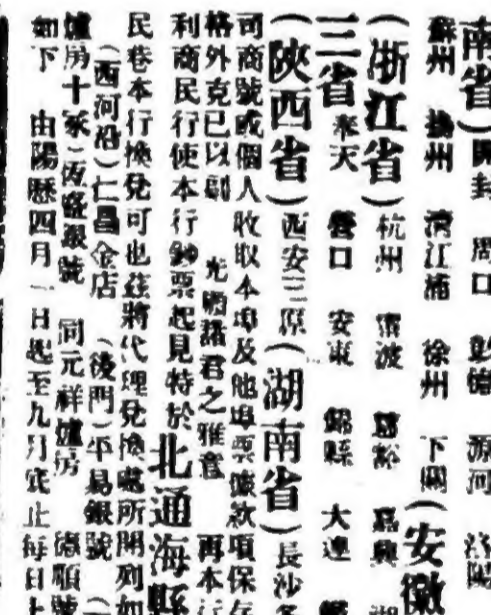 南省）開封　周口　彰德　源河　洛陽
蘇州　揚州　清江浦　徐州　下關（安徽
（浙江省）杭州　甯波　嘉興
三省奉天　營口　安東　錦縣　大連
（陝西省）西安三原（湖南省）長沙
司商號或個人收取本埠及他埠票據款項保存
格外克已以副　光顧諸君之雅意　再本行
利商民行使本行鈔票起見特於北通海縣
民巷本行換兌可也茲將代理兌換處所開列如
（西河沿）仁昌金店（後門）平易銀號（
爐房十家）恆盛銀號　同元祥爐房　德順號
如下　由陽歷四月一日起至九月底止每日上